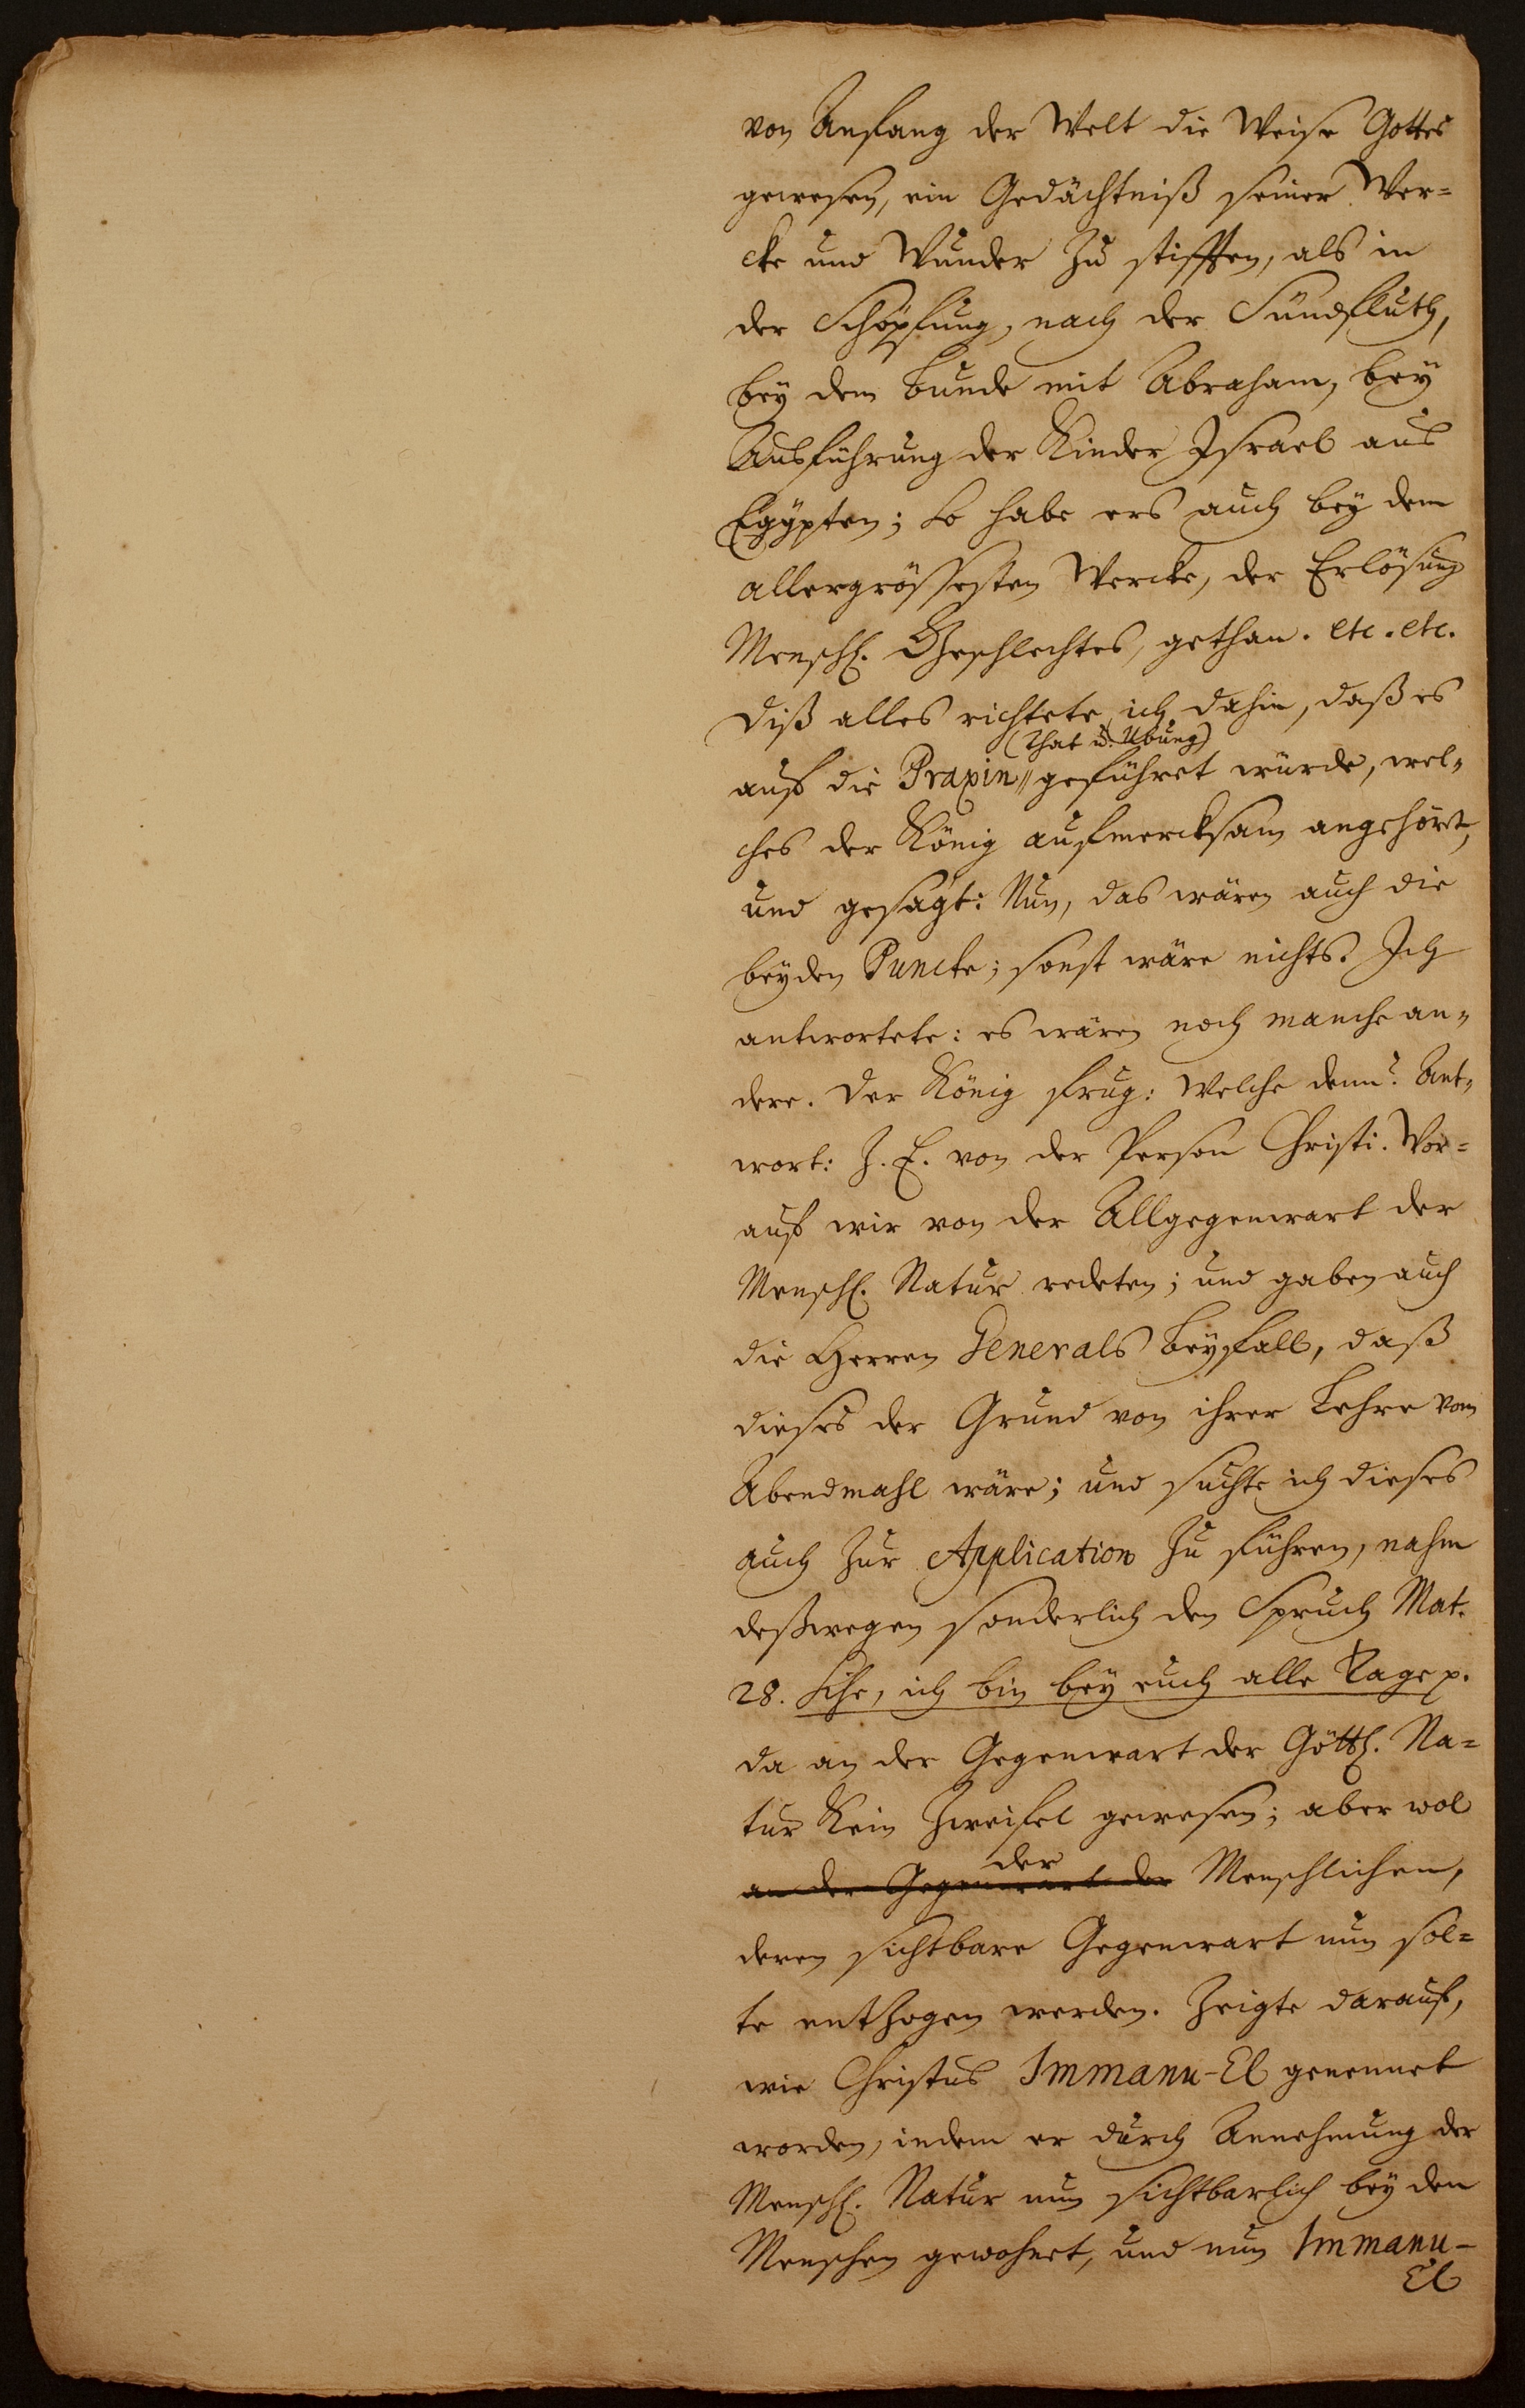 von Anfang der Welt die Weise Gottes
gewesen, ein Gedächtniß seiner Wer=
cke und Wunder zu stifften, als in
der Schöpfung, nach der Sündfluth,
bey dem Bunde mit Abraham, bey
Ausführung der Kinder Israel aus
Egypten; So habe ers auch bey dem
allergrössesten Wercke, der Erlösung
Menschl. Geschlechtes, gethan. etc. etc.
Diß alles richtete ich dahin, daß es
(That u. Ubung)
auf die Praxin geführet würde, wel=
ches der König aufmercksam angehört,
und gesagt: Nun, das wären auch die
beyden Puncte; sonst wäre nichts. Ich
antwortete: es wären noch manche an=
dere. Der König frug: Welche denn? Ant=
wort: Z. E. von der Person Christi. Wor=
auf wir von der Allgegenwart der
Menschl. Natur redeten; und gaben auch
die Herren Generals Beyfall, daß
dieses der Grund von ihrer Lehre vom
Abendmahl wäre; und suchte ich dieses
auch zur Application zu führen, nahm
deßwegen sonderlich den Spruch Mat.
28. Sihe, ich bin bey euch alle Tage p.
da an der Gegenwart der Göttl. Na=
tur kein Zweifel gewesen; aber wol
der
an der Gegenwart der Menschlichen,
deren sichtbare Gegenwart nun sol=
te entzogen werden. Zeigte darauf,
wie Christus Immanu-El genennet
worden, indem er durch Annehmung der
Menschl. Natur nun sichtbarlich bey den
Menschen gewohnet, und nun Immanu-
El